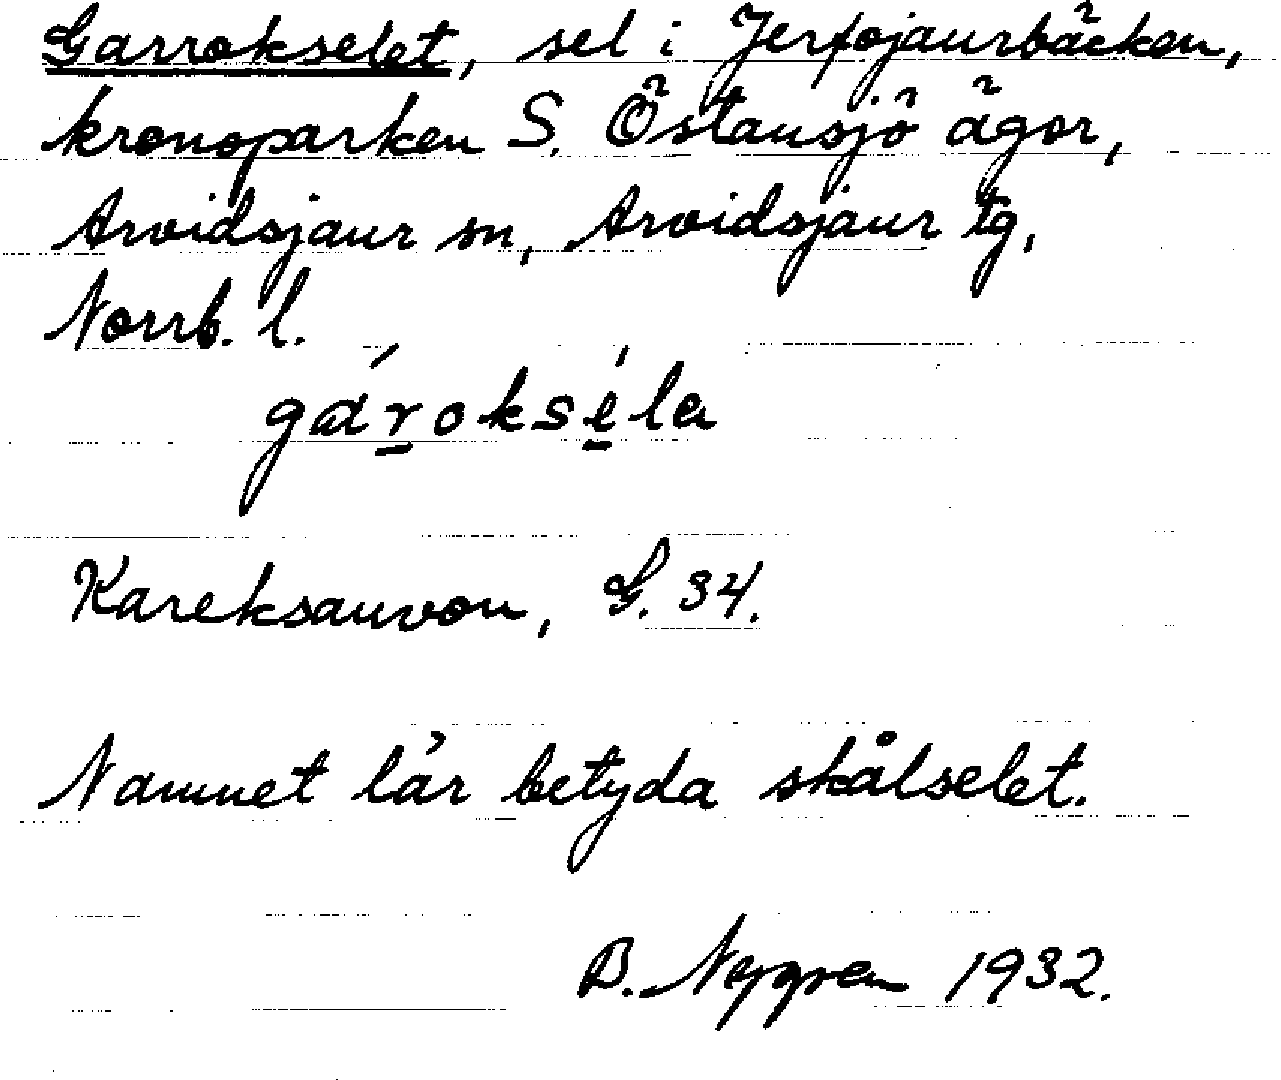 Garrokselet, sel i Jerfojaurbäcken,
kronoparken S. Östansjö ägor,
Arvidsjaur sn, Arvidsjaur tg,
Norrb. l.
gárokséla
Kareksauvon, G. 34.
Namnet lär betyda skålselet.
B. Nygren 1932.